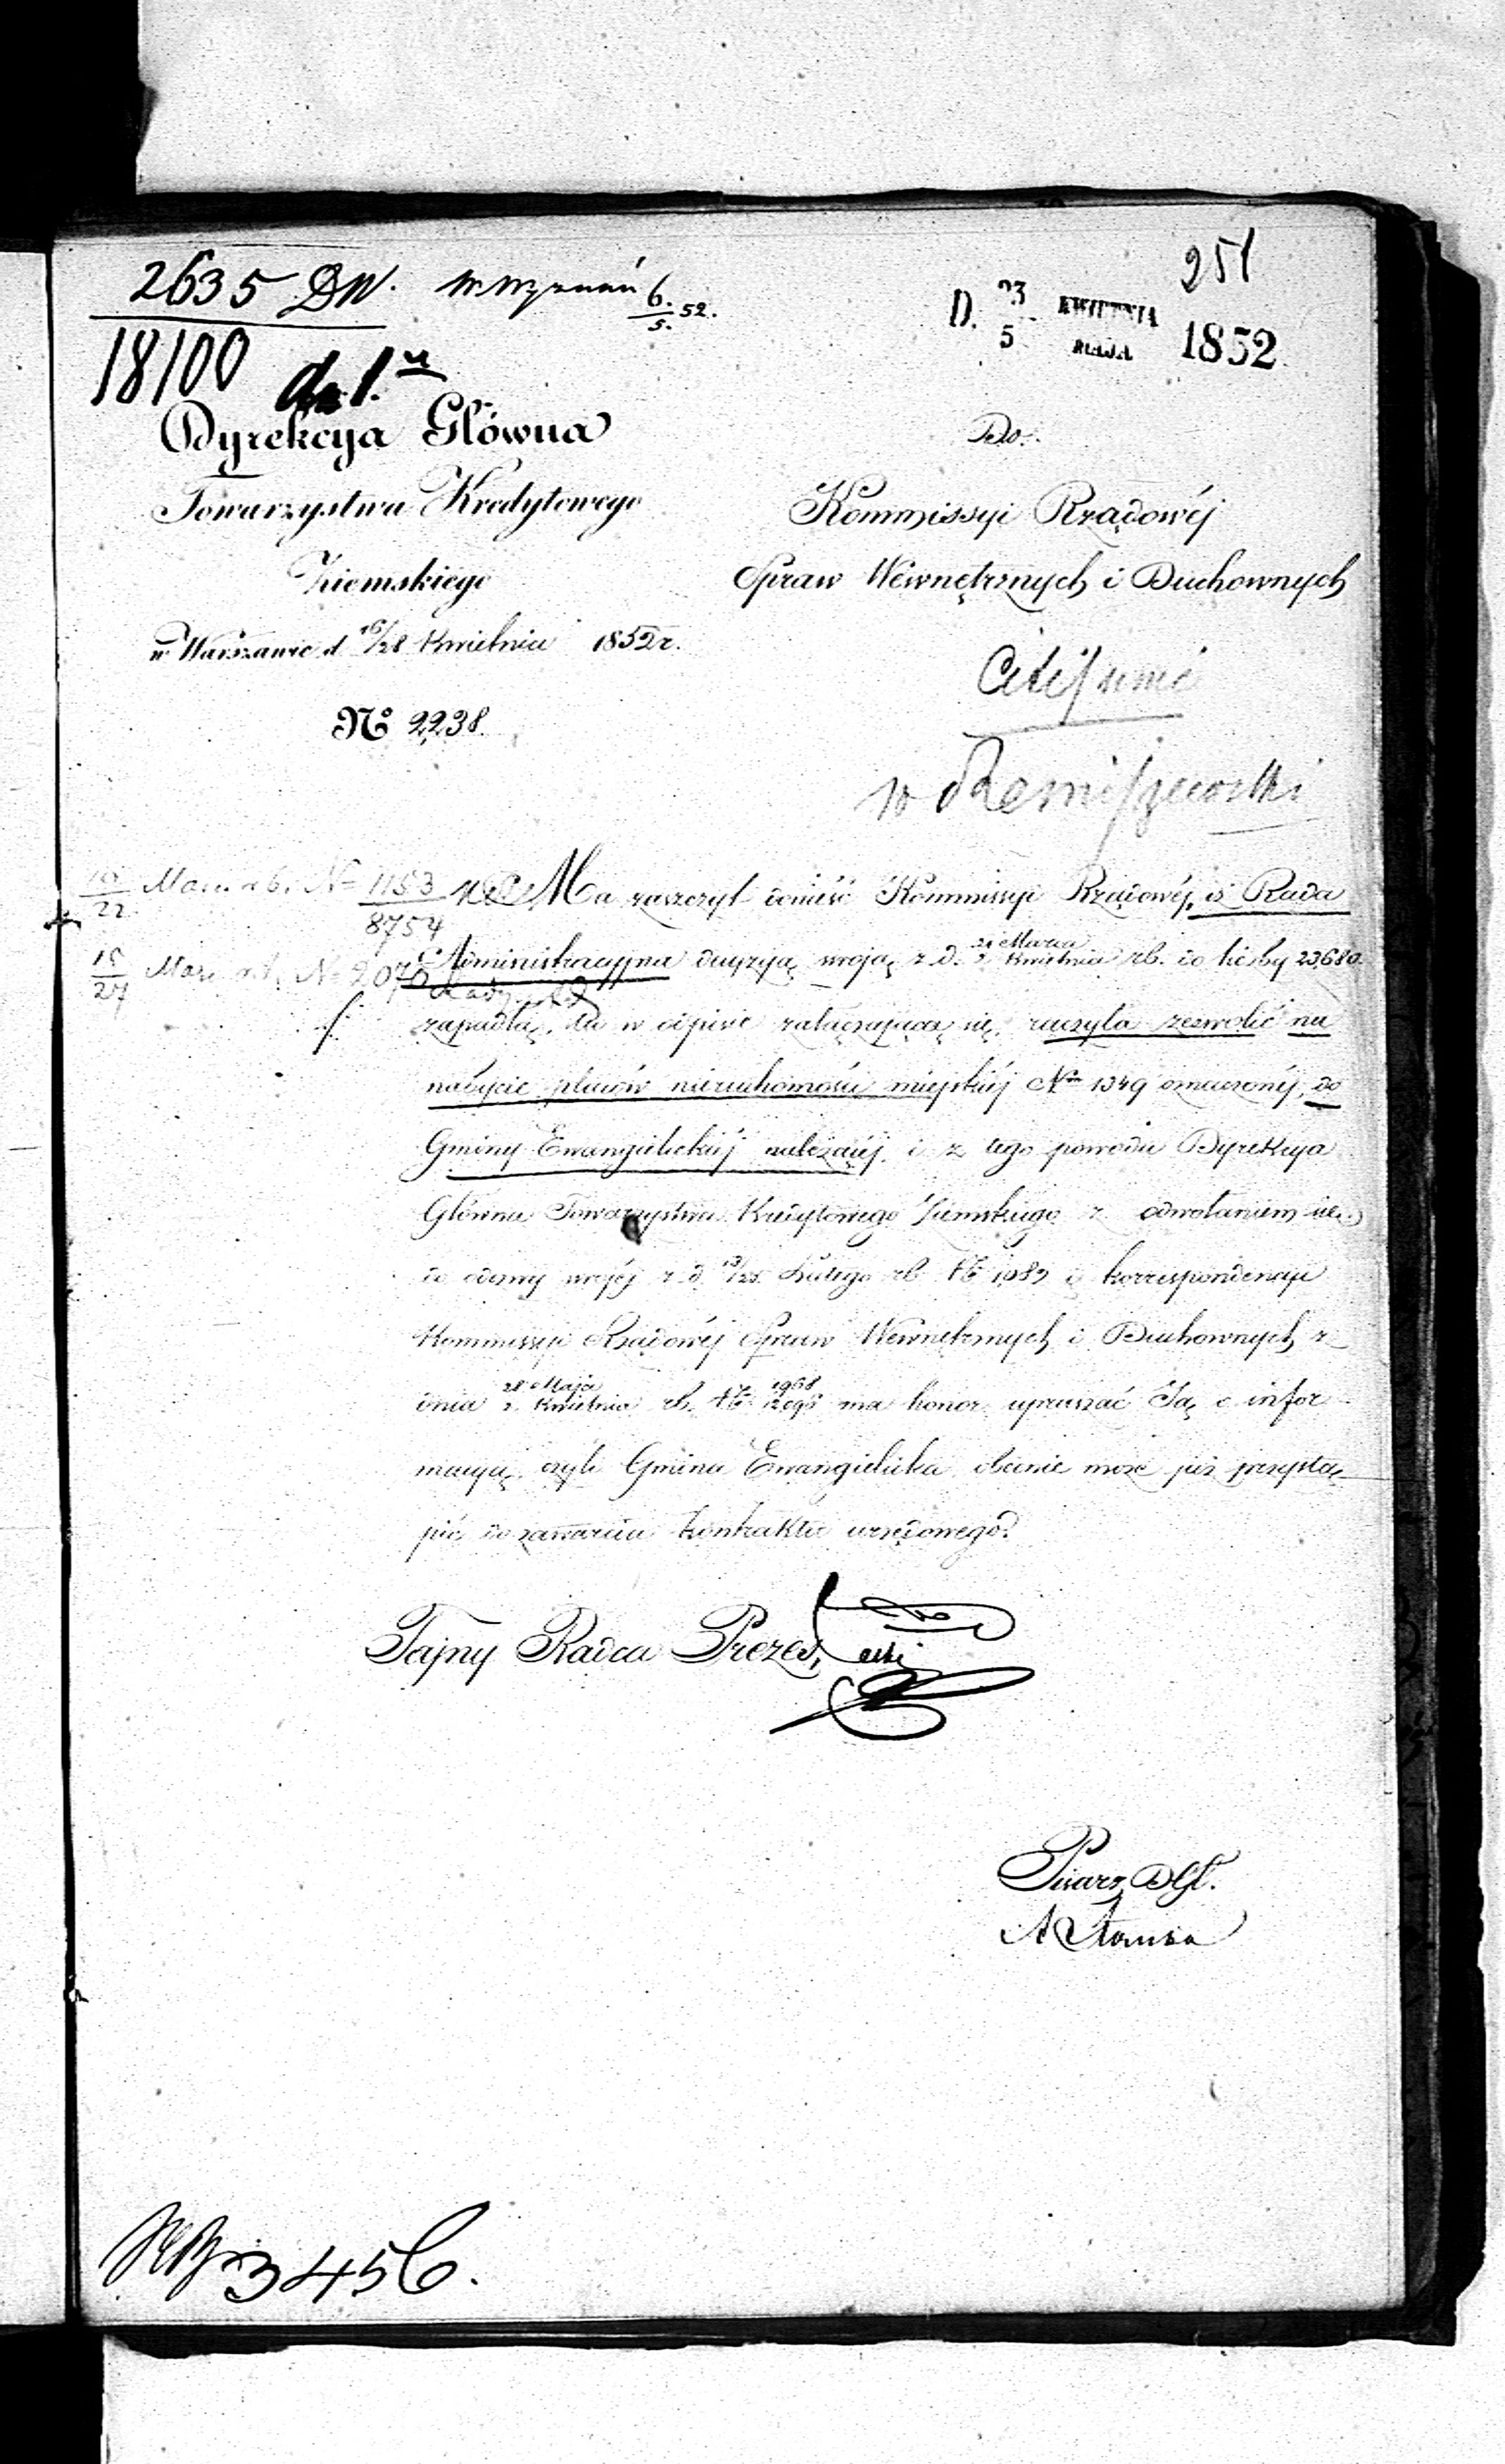 251
2635 DW. 6./5. 52.
D. 23/5 KWIETNIA/MAJA 1852
18100
Dyrekcya Główna
Towarzystwa Kredytowego
Ziemskiego
w Warszawie d 16/28 Kwietnia 1852 r.
No 2,238.
Do
Kommissyi Rządowéj
Spraw Wewnętrznych i Duchownych
10/22 Mar. rb. No 1153/8754
15/27 Mar. rb. No 2070
Ma zaszczyt donieść Kommissyi Rządowéj, iż Rada
Administracyjna decyzyą swoją z d. 21 Marca/2 Kwietnia rb. do liczby 23,680.
zapadłą, tu w odpisie załączającą się, raczyła zezwolić na
nabycie placów nieruchomości miejskiéj No 1349 oznaczonéj, do
Gminy Ewangielickiéj należącéj, i z tego powodu Dyrekcya
Główna Towarzystwa Kredytowego Ziemskiego z odwołaniem się
do odezwy swojéj z d. 13/25 Lutego rb. No 1,083 i korrespondencyi
Kommissyi Rządowéj Spraw Wewnętrznych i Duchownych z
dnia 28 Maja/2 Kwietnia rb. No 1968 ma honor upraszać Ją o infor-
macyą, czyli Gmina Ewangielicka obecnie może już przystą-
pić do zawarcia kontraktu urzędowego.
Tajny Radca Prezes,
Pisarz DGł.
3456.